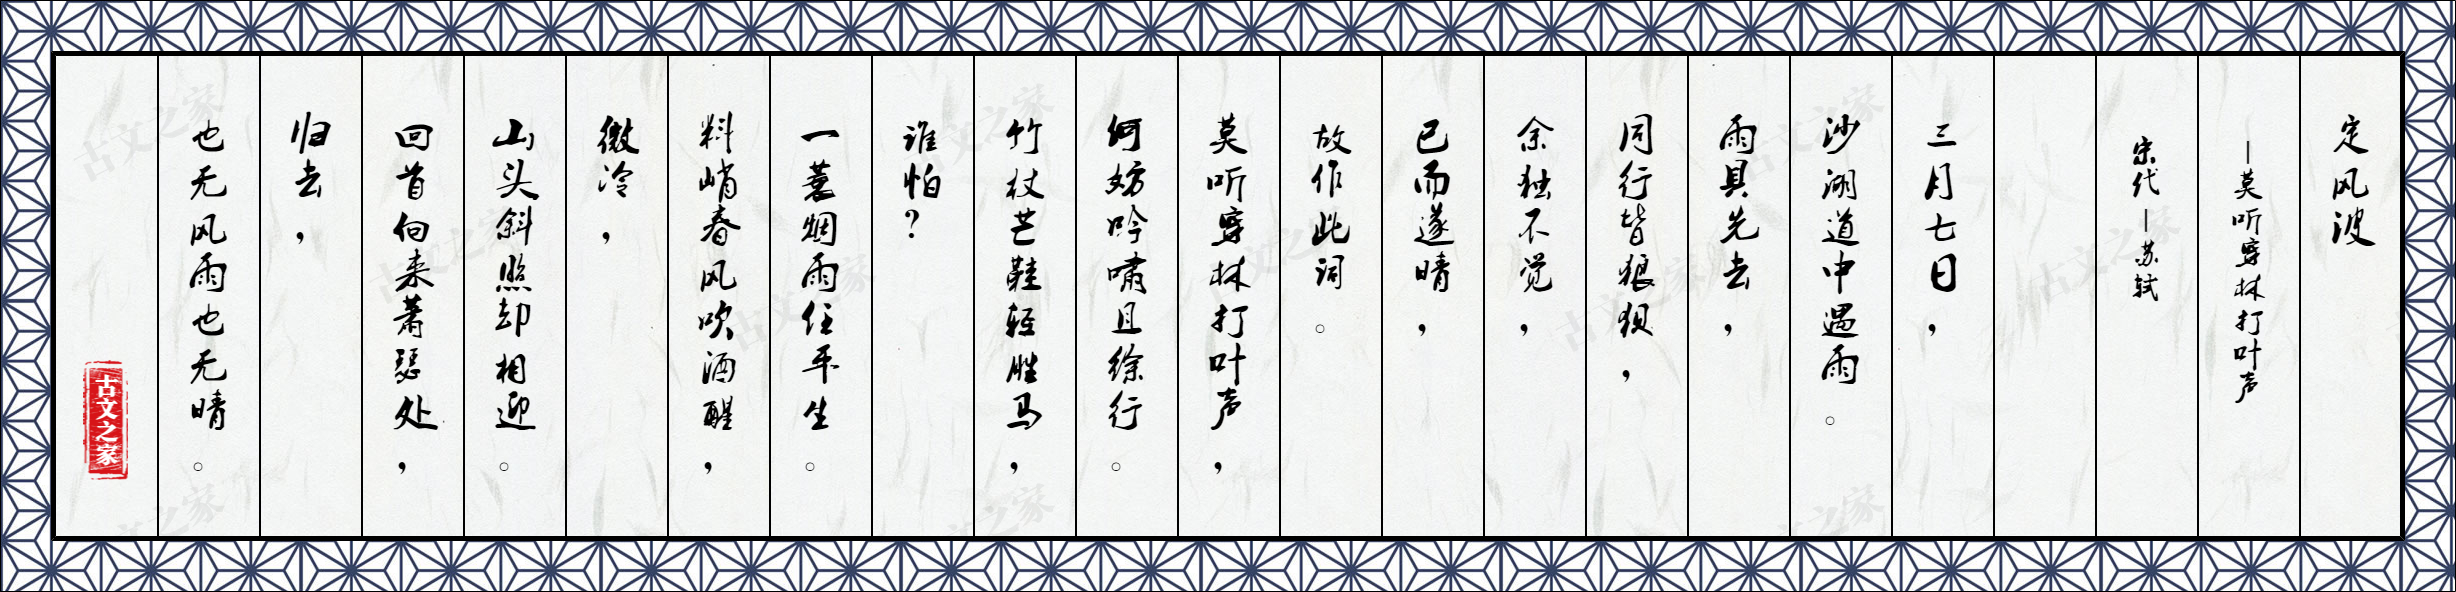 定风波
—莫听穿林打叶声
宋代—苏轼
三月七日，
沙湖道中遇雨。
雨具先去，
同行皆狼狈，
余独不觉，
已而遂晴，
故作此词。
莫听穿林打叶声，
何妨吟啸且徐行。
竹杖芒鞋轻胜马，
谁怕？
一蓑烟雨任平生。
料峭春风吹酒醒，
微冷，
山头斜照却相迎。
回首向来萧瑟处，
归去，
也无风雨也无晴。
古文之家